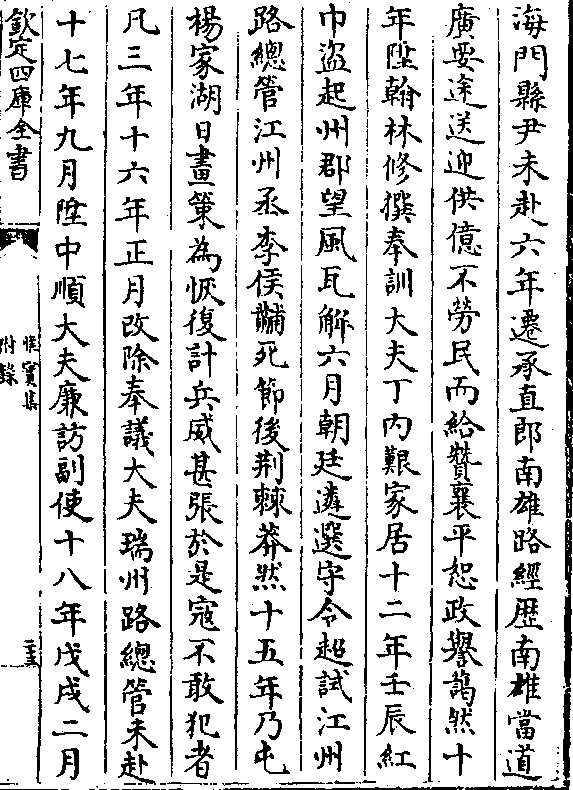 海門縣尹未赴六年遷承直郎南雄路經歴南雄當道
廣要途送迎供億不勞民而給贊襄平恕政譽藹然十
年陞翰林修撰奉訓大夫丁内艱家居十二年壬辰紅
巾盗起州郡望風瓦解六月朝廷遴選守令超試江州
路總管江州丞李侯黼死節後荆棘莽然十五年乃屯
楊家湖日畫策為恢復計兵威甚張於是宼不敢犯者
凡三年十六年正月改除奉議大夫瑞州路總管未赴
十七年九月陞中順大夫廉訪副使十八年戊戌二月
欽定四庫全書
惟實集
附錄